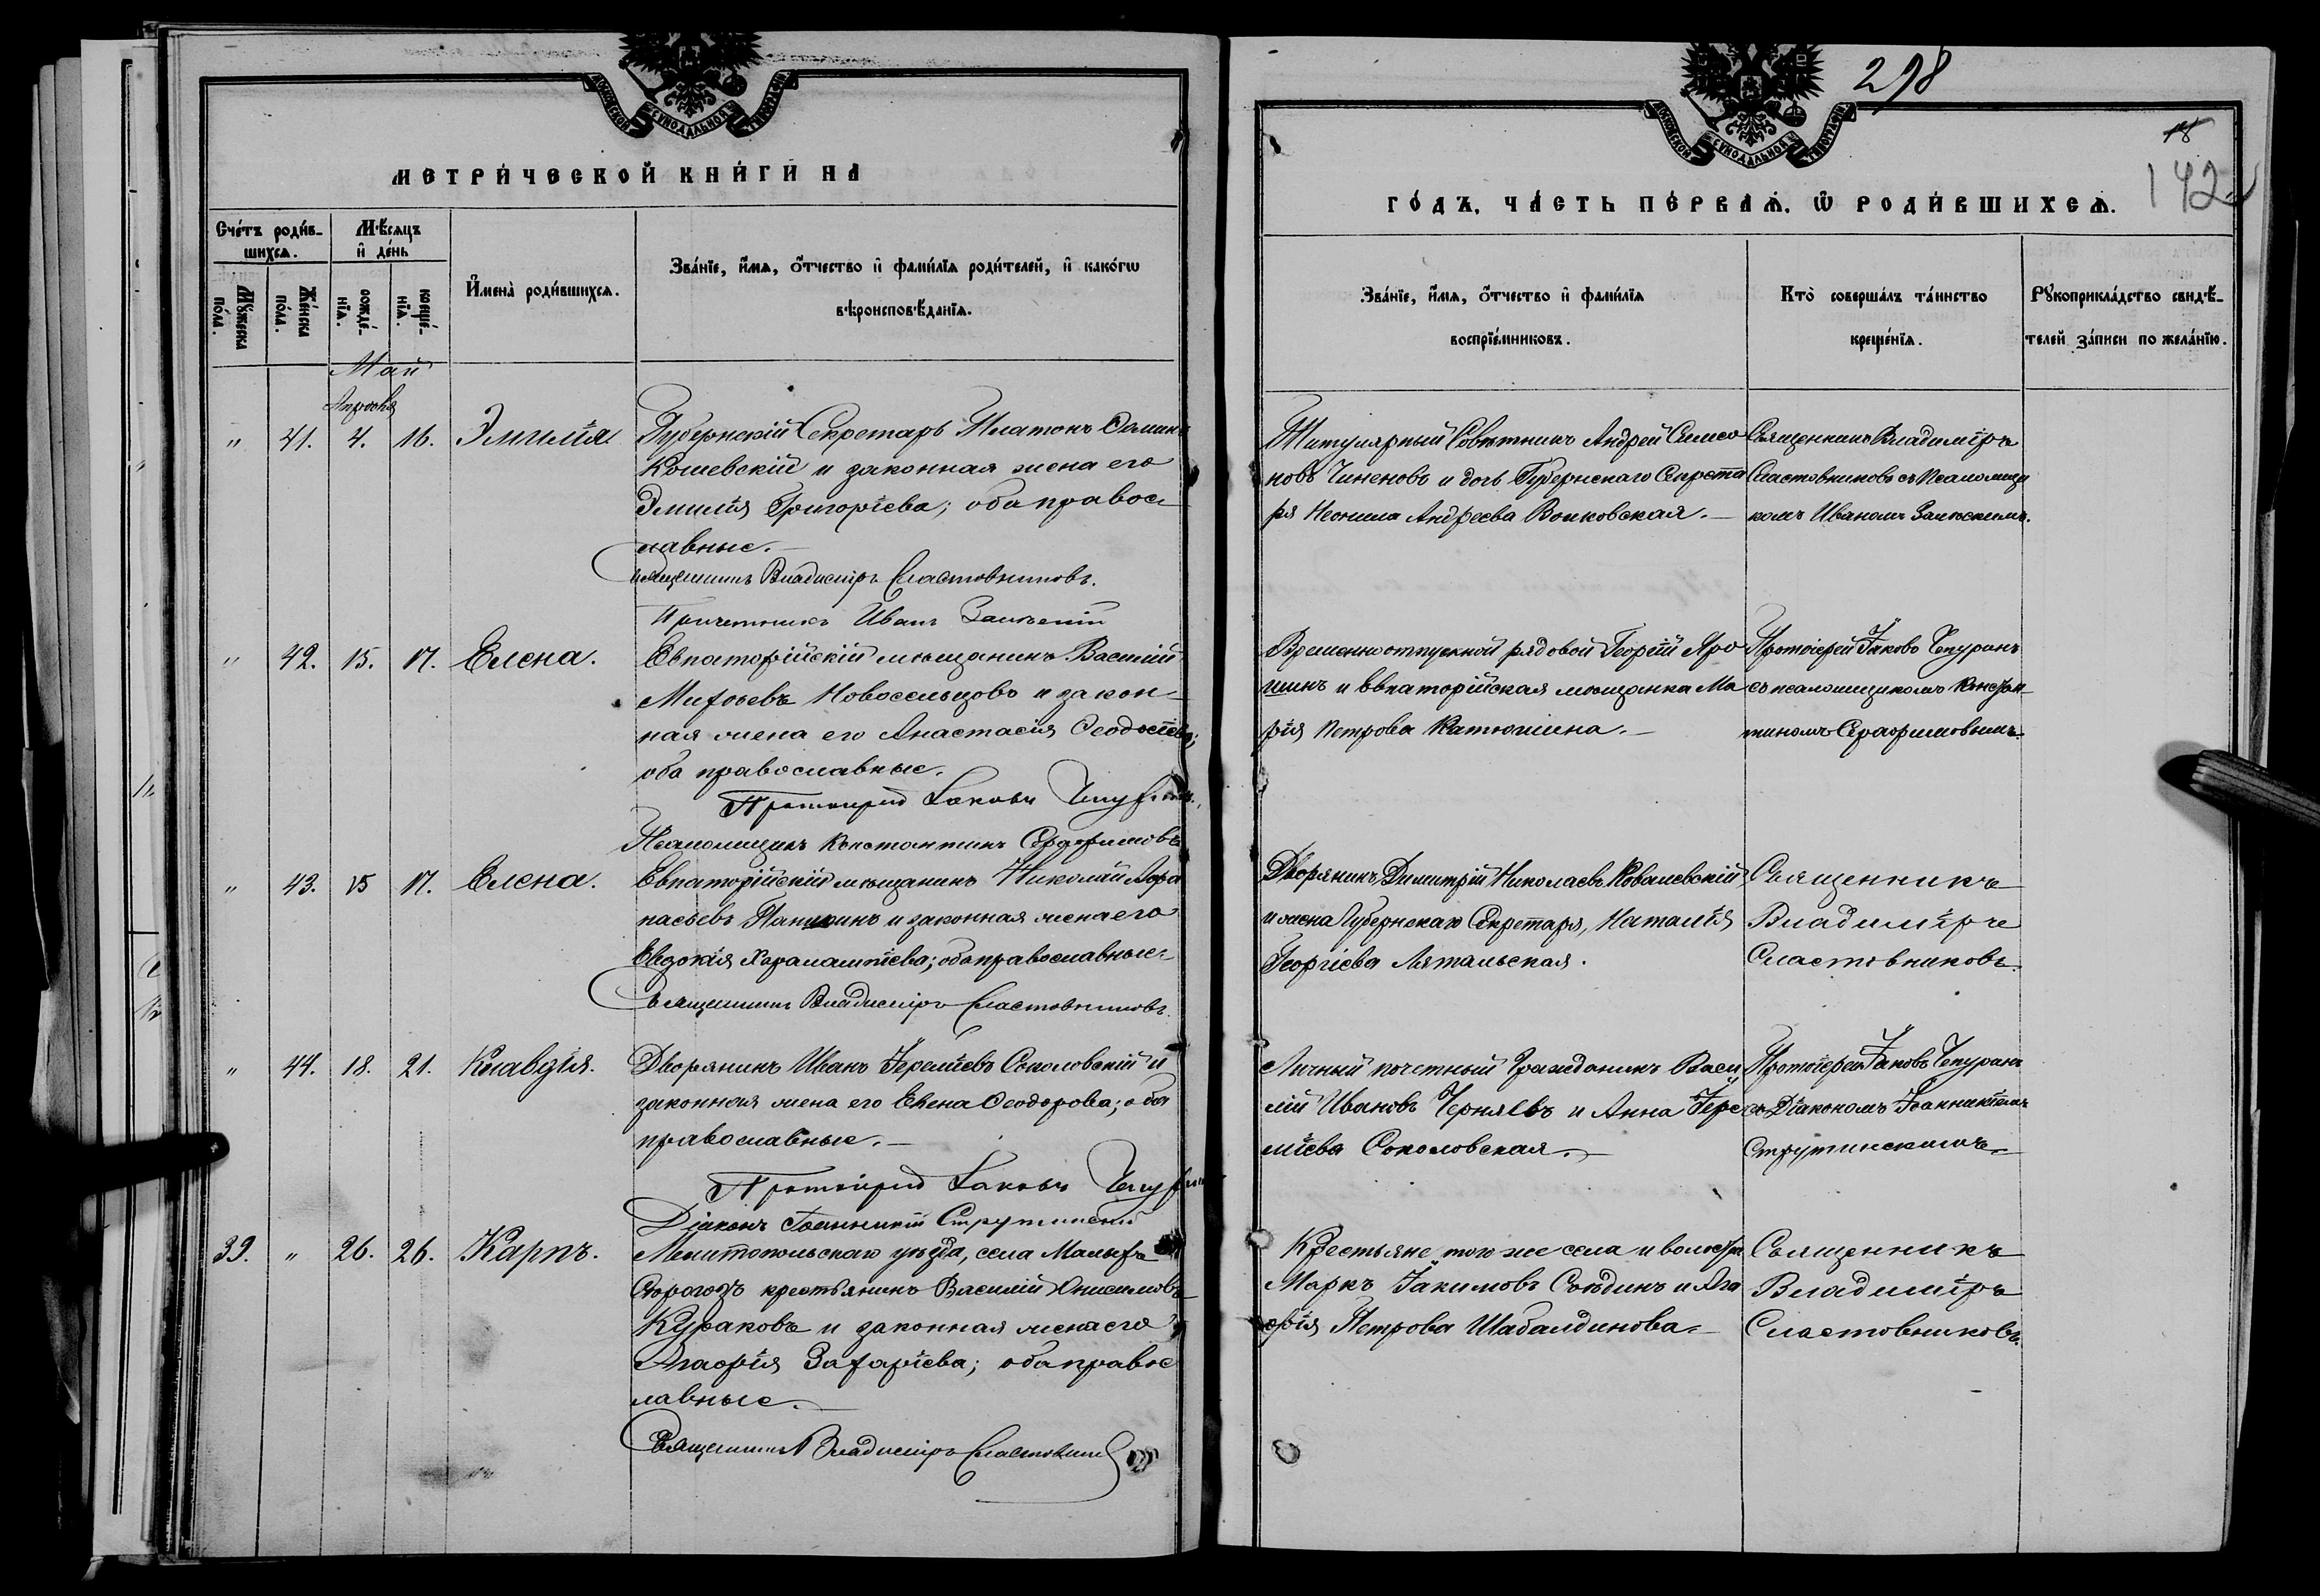 МЕТРИ́ЧЕСКОЙ КНИ́ГИ НА
Сче́тъ роди́в-
шихсѧ.
Мѣ́сѧцъ
и҆ де́нь
И҆мена̀ роди́вшихсѧ.
Зва́нїе, и҆́мѧ, ѻ҆́тчество и҆ фами́лїѧ роди́телей, и҆ како́гѡ
вѣроисповѣ́данїѧ.
Мꙋ́жеска по́ла.
Же́нска по́ла.
рожде́-нїѧ.
креще́-нїѧ.
Май
Апрѣля
" 41. 4. 16. Эмилія
Губернскій Секретарь Платонъ
Кошевскій и законная жена его
Эмилія Григоріева; оба правос-
лавные.
Священникъ Владиміръ Сластовниковъ.
Причетникъ Иванъ
" 42. 15. 17. Елена.
Евпаторійскій мѣщанинъ Василій
Михѣевъ Новосельцовъ и закон-
ная жена его Анастасія Ѳеодосіева;
оба православные.
Протоіерей Іаковъ Чепуринъ.
Псаломщикъ Константинъ Серафимовъ
" 43. 15 17. Елена.
Евпаторійскій мѣщанинъ Николай Аѳа
насьевъ и законная жена его
Евдокія Харалампіева; оба православные
Священникъ Владиміръ Сластовниковъ.
" 44. 18. 21. Клавдія.
Дворянинъ Иванъ Іереміевъ Соколовскій и
законная жена его Елена Ѳеодорова; оба
православные.
Протоіерей Іаковъ Чепуринъ
Діаконъ Іоанникій Струтинскій
39. " 26. 26. Карпъ.
Мелитопольскаго уѣзда, села Малыхъ
Сѣрогозъ крестьянинъ Василій Онисимовъ
Кураковъ и законная жена его
Агафія Захаріева; оба правос
лавные.
Священникъ Владиміръ Сластовниковъ
298
18
142
ГО́ДЪ, ЧА́СТЬ ПЕ́РВАѦ, Ѡ҆ РОДИ́ВШИХСѦ.
Зва́нїе, и҆́мѧ, ѻ҆́тчество и҆ фами́лїѧ
воспрїе́мниковъ.
Кто̀ соверша́лъ та́инство
креще́нїѧ.
Рꙋкоприкла́дство свидѣ́-
телей за́писи по жела́нїю.
Титулярный Совѣтникъ Андрей Симео
новъ Чиненовъ и дочь Губернскаго Секрета
ря Неонила Андреева Волковская.
Священникъ Владиміръ
Сластовниковъ съ Псаломщи
комъ Иваномъ
Временно отпускной рядовой Георгій Яро
шикъ и Евпаторійская мѣщанка Ма
рія Петрова Катюшина.
Протоіерей Іаковъ Чепуринъ
съ псаломщикомъ Констан
тиномъ Серафимовымъ.
Дворянинъ Димитрій Николаевъ Ковалевскій
и жена Губернскаго Секретаря, Наталія
Георгіева Лятальская.
Священникъ
Владиміръ
Сластовниковъ.
Личный почетный Гражданинъ Васи
лій Ивановъ Черняевъ и Анна Іере
міева Соколовская.
Протоіерей Іаковъ Чепуринъ
съ Діакономъ Іоанникіемъ
Струтинскимъ.
Крестьяне того же села и волости
Маркъ Іакимовъ Сѣдинъ и Ага
фія Петрова Шабалдинова.
Священникъ
Владиміръ
Сластовниковъ.